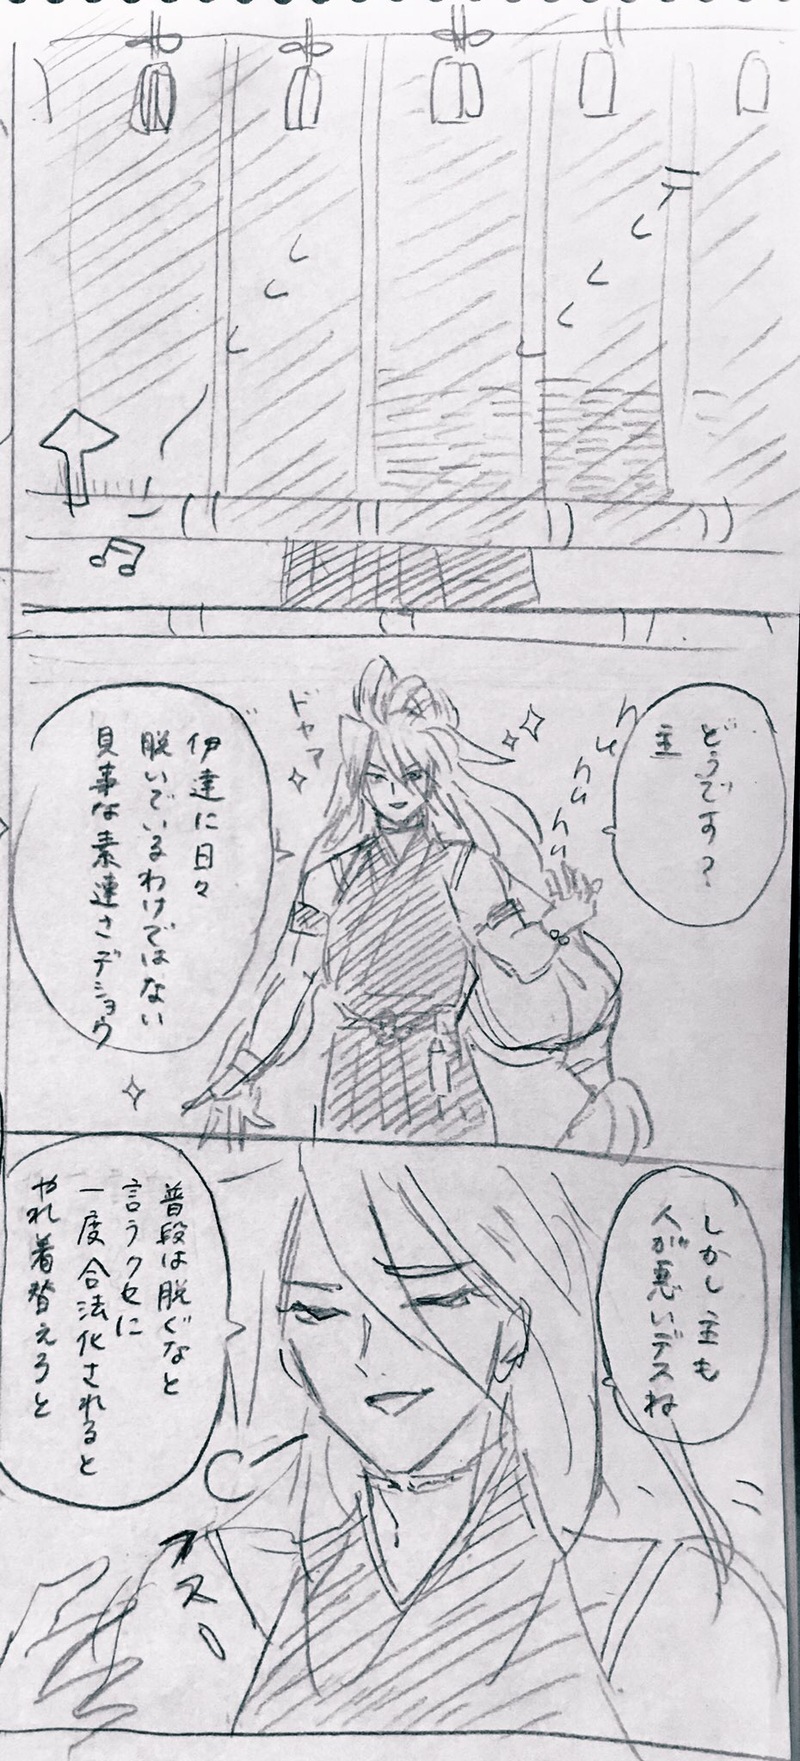 どうです?
主
ドヤァ
伊達に日々
脱いでいるわけではない
見事な素速さデショウ
しかし主も
人が悪いデスね
普段は脱ぐなと
言うクセに
一度合法化されると
やれ着替えろと